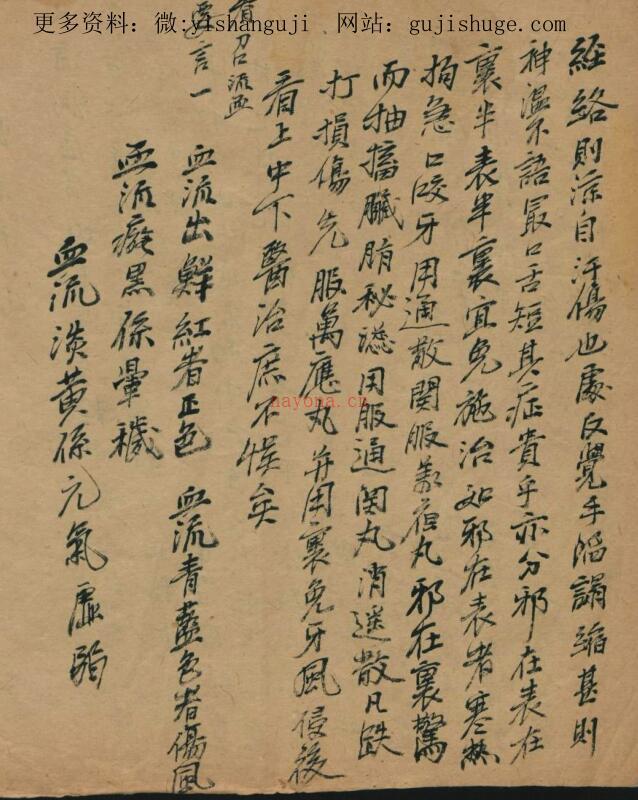 更多资料：微:yishanguji 网站：gujishuge.com
經絡則涼自汗傷也處反覺手陷謁縮甚則
神溫不語最口舌短其症貴乎亦分邪在表在
裏半表半裏宜免施治如邪在表者寒熱
拘急口咬牙用通散関服丸邪在裏驚
而抽搐臟腑秘用服通関丸消遥散凡跌
打損傷先服萬應丸并用裏免牙風侵後
看上中下醫治庶不悮矣
刀口流血
要言一
血流出鮮紅者正色 血流青藍色者傷風
血流癡黑係暈穢
血流淡黄係元氣虛弱
nayona.cn